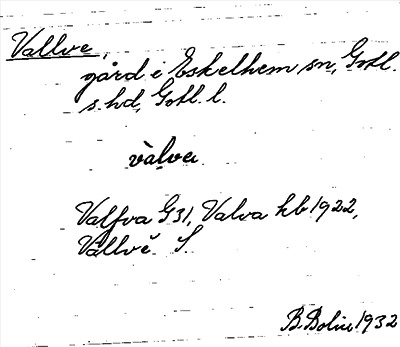 Vallve,
gård i Eskelhem sn, Gotl.
s. hd, Gotl. l.
vàlva
Valfva G31, Valva hb 1922,
Vallvĕ S.
B. Bolin 1932